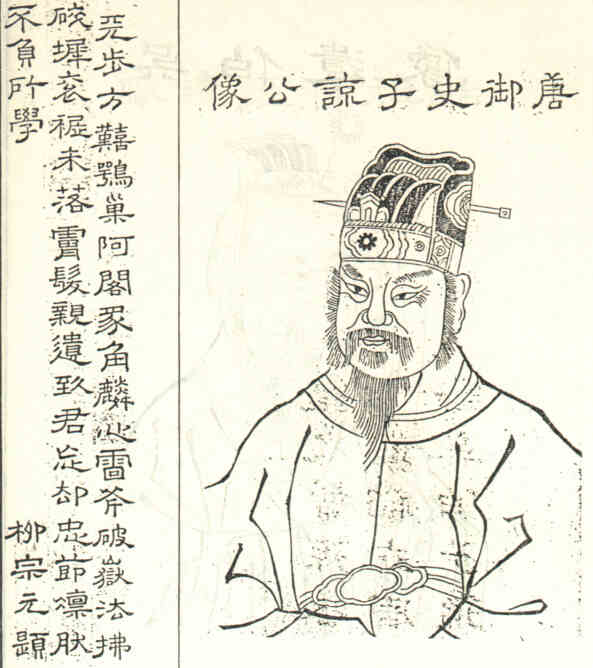 唐御史子諒公像
步方囏鶚巢阿閣豸角麟雷斧破嶽法拂
墀未落髮親遺致君却忠節凜肰
不負所學 柳宗元題